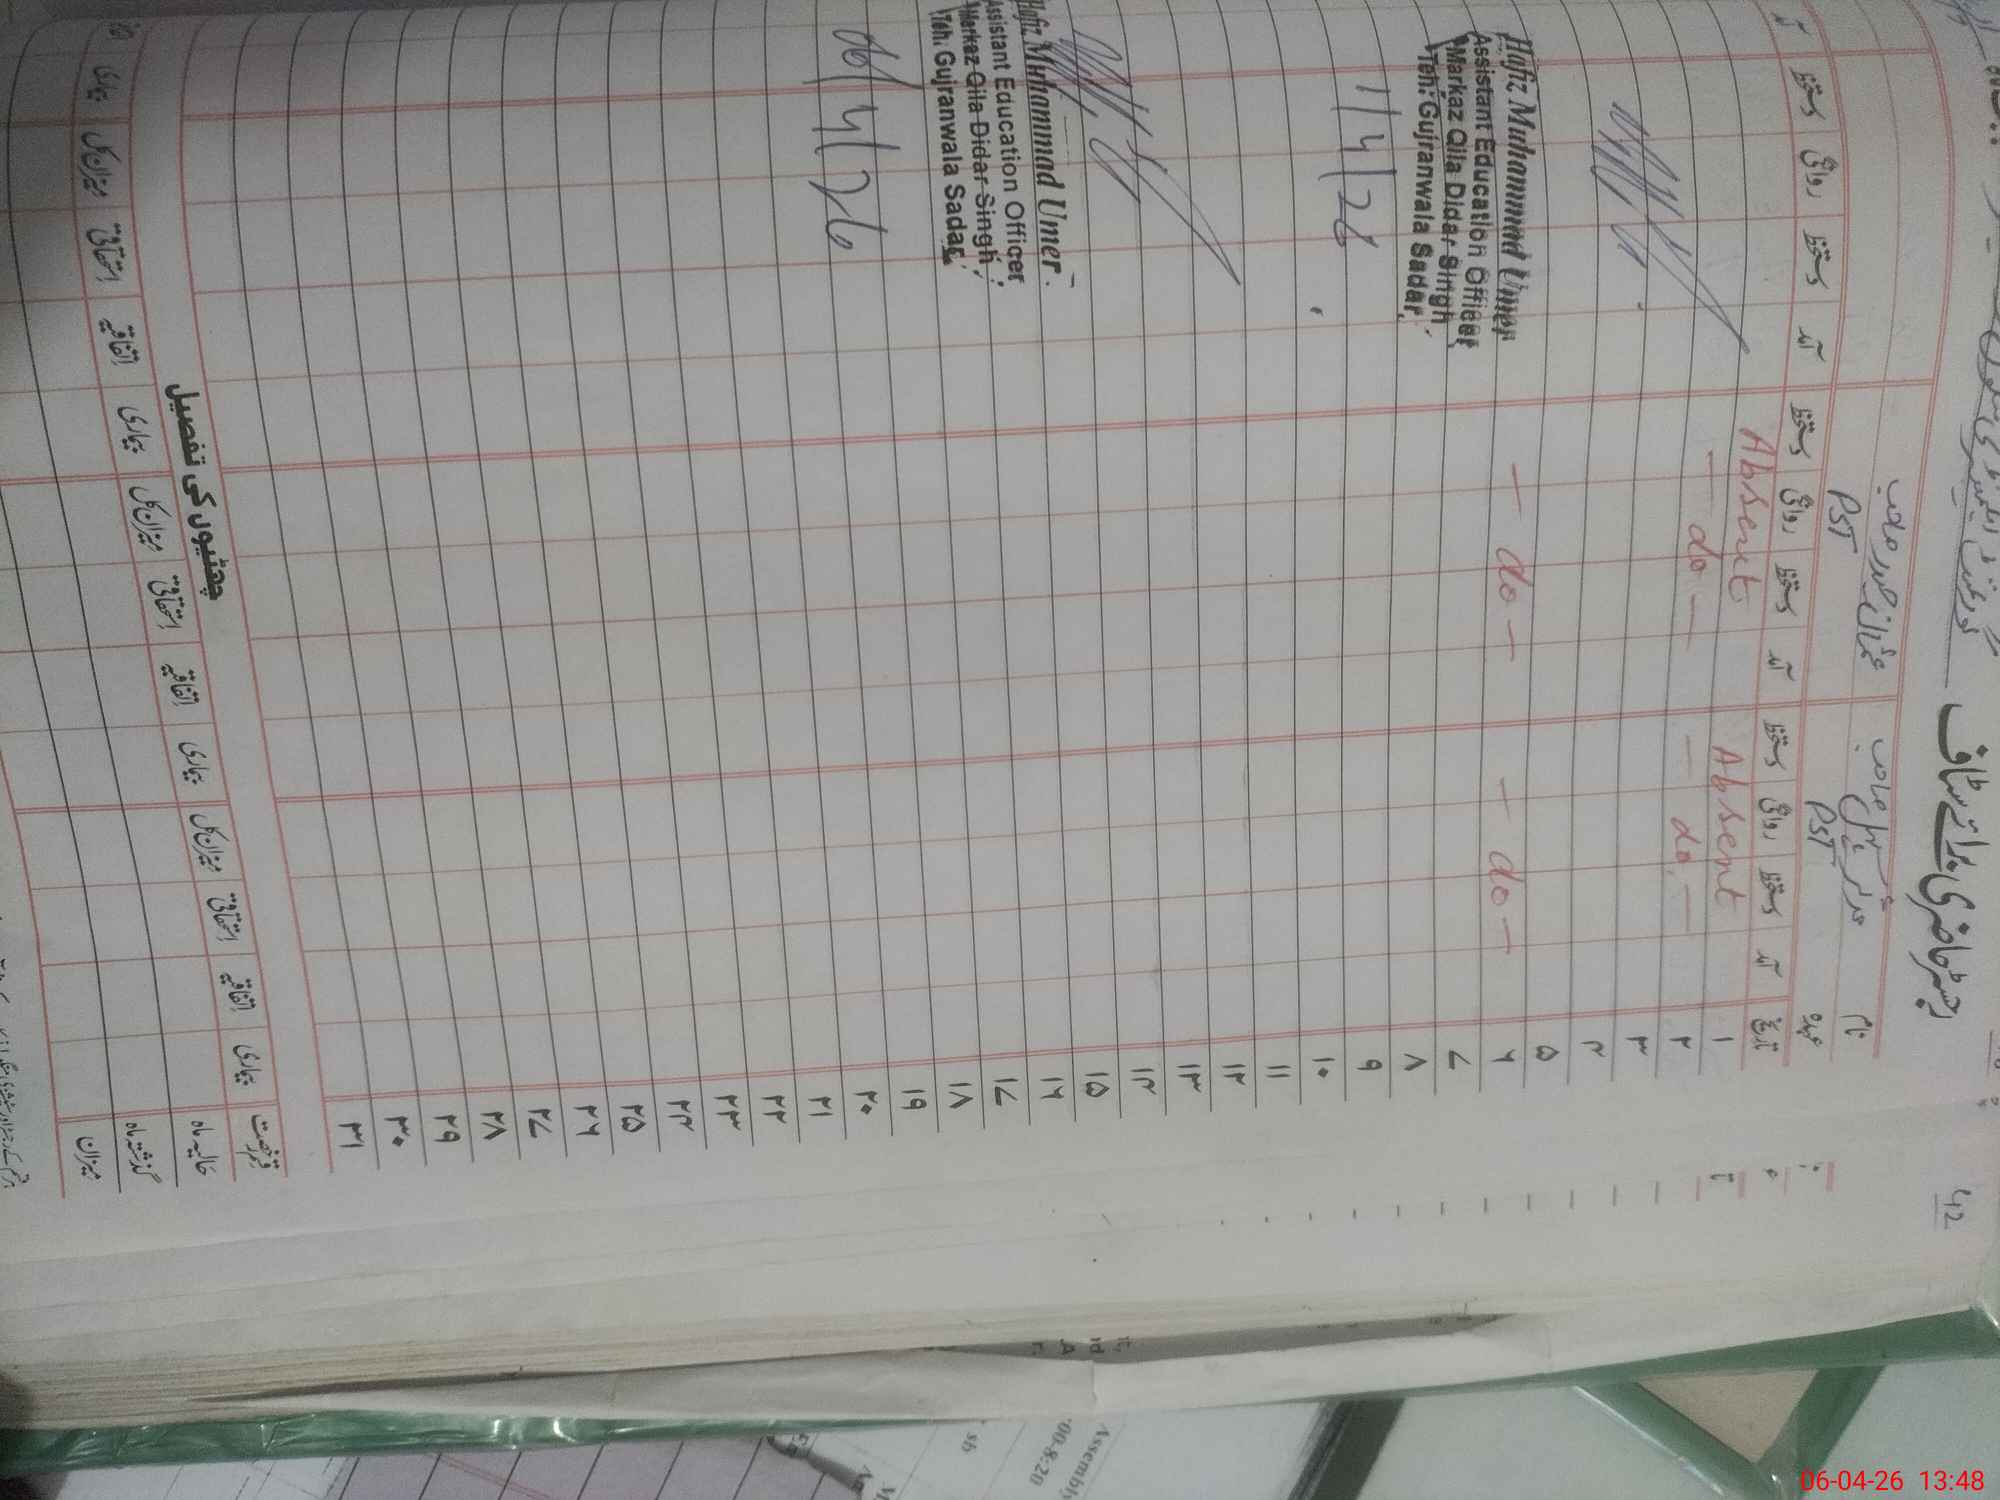 رجسٹر حاضری برائے سٹاف
42
نام
عہدہ PST PST
تاریخ آمد دستخط روانگی دستخط آمد دستخط روانگی دستخط آمد دستخط روانگی دستخط
۱ Absent Absent
۲ — do — — do —
۳
۴
۵
۶ — do — — do —
۷
۸
۹
۱۰
۱۱
۱۲
۱۳
۱۴
۱۵
۱۶
۱۷
۱۸
۱۹
۲۰
۲۱
۲۲
۲۳
۲۴
۲۵
۲۶
۲۷
۲۸
۲۹
۳۰
۳۱
Hafiz Muhammad Umer
Assistant Education Officer
Markaz Qila Didar Singh
Teh: Gujranwala Sadar
1/4/26
Hafiz Muhammad Umer
Assistant Education Officer
Markaz Qila Didar Singh
Teh: Gujranwala Sadar
06/4/26
چھٹیوں کی تفصیل
قسم رخصت بیماری اتفاقیہ استحقاقی میزان کل بیماری اتفاقیہ استحقاقی میزان کل بیماری اتفاقیہ استحقاقی میزان کل بیماری
حالیہ ماہ
گذشتہ ماہ
میزان
Assembly
00-8:20
06-04-26 13:48